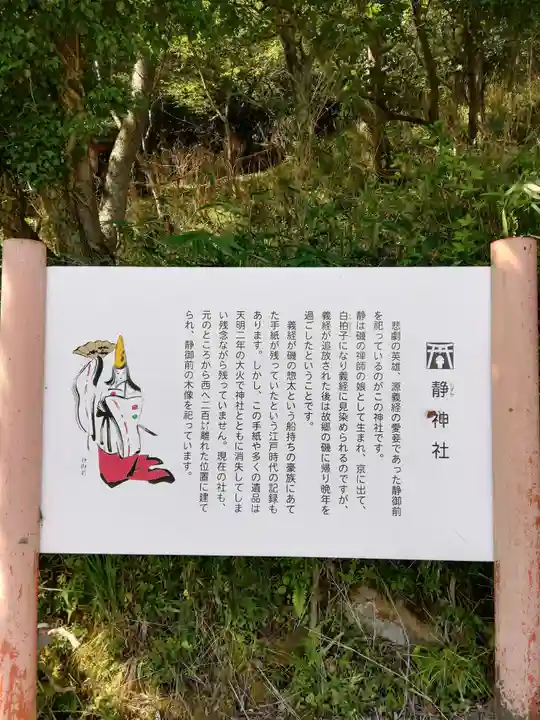 静神社
しずか
悲劇の英雄、源義経の愛妾であった静御前
を祀っているのがこの神社です。
静は磯の禅師の娘として生まれ、京に出て、
白拍子になり義経に見染められるのですが、
義経が追放された後は故郷の磯に帰り晩年を
過ごしたということです。
義経が磯の惣太という船持ちの豪族にあて
た手紙が残っていたという江戸時代の記録も
あります。しかし、この手紙や多くの遺品は
天明二年の大火で神社とともに消失してしま
い残念ながら残っていません。現在の社も、
元のところから西へ二百㍍離れた位置に建て
られ、静御前の木像を祀っています。